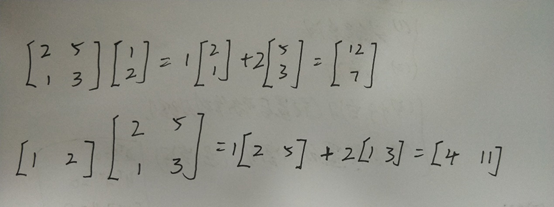 [2 5; 1 3] [1; 2] = 1 [2; 1] + 2 [5; 3] = [12; 7]
[1 2] [2 5; 1 3] = 1 [2 5] + 2 [1 3] = [4 11]